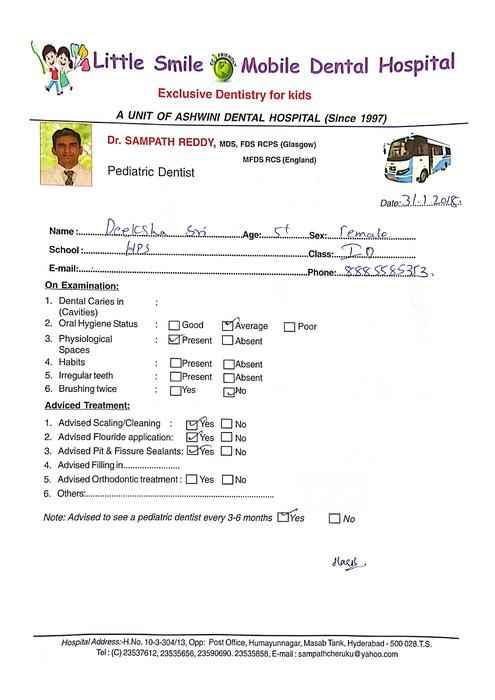 Little Smile ECO FRIENDLY Mobile Dental Hospital
Exclusive Dentistry for kids
A UNIT OF ASHWINI DENTAL HOSPITAL (Since 1997)
Dr. SAMPATH REDDY, MDS, FDS RCPS (Glasgow)
MFDS RCS (England)
Pediatric Dentist
Date: 31.1.2018.
Name : Deeksha Sri Age: 5+ Sex: Female
School : HPS Class: I D
E-mail: Phone: 8885585353.
On Examination:
1. Dental Caries in :
(Cavities)
2. Oral Hygiene Status : Good Average Poor
3. Physiological : Present Absent
Spaces
4. Habits : Present Absent
5. Irregular teeth : Present Absent
6. Brushing twice : Yes No
Adviced Treatment:
1. Advised Scaling/Cleaning : Yes No
2. Advised Flouride application: Yes No
3. Advised Pit & Fissure Sealants: Yes No
4. Advised Filling in......................
5. Advised Orthodontic treatment : Yes No
6. Others:............................................................
Note: Advised to see a pediatric dentist every 3-6 months Yes No
Hospital Address:-H.No. 10-3-304/13, Opp: Post Office, Humayunnagar, Masab Tank, Hyderabad - 500 028.T.S.
Tel : (C) 23537612, 23535656, 23590690. 23535858, E-mail : sampathcheruku@yahoo.com